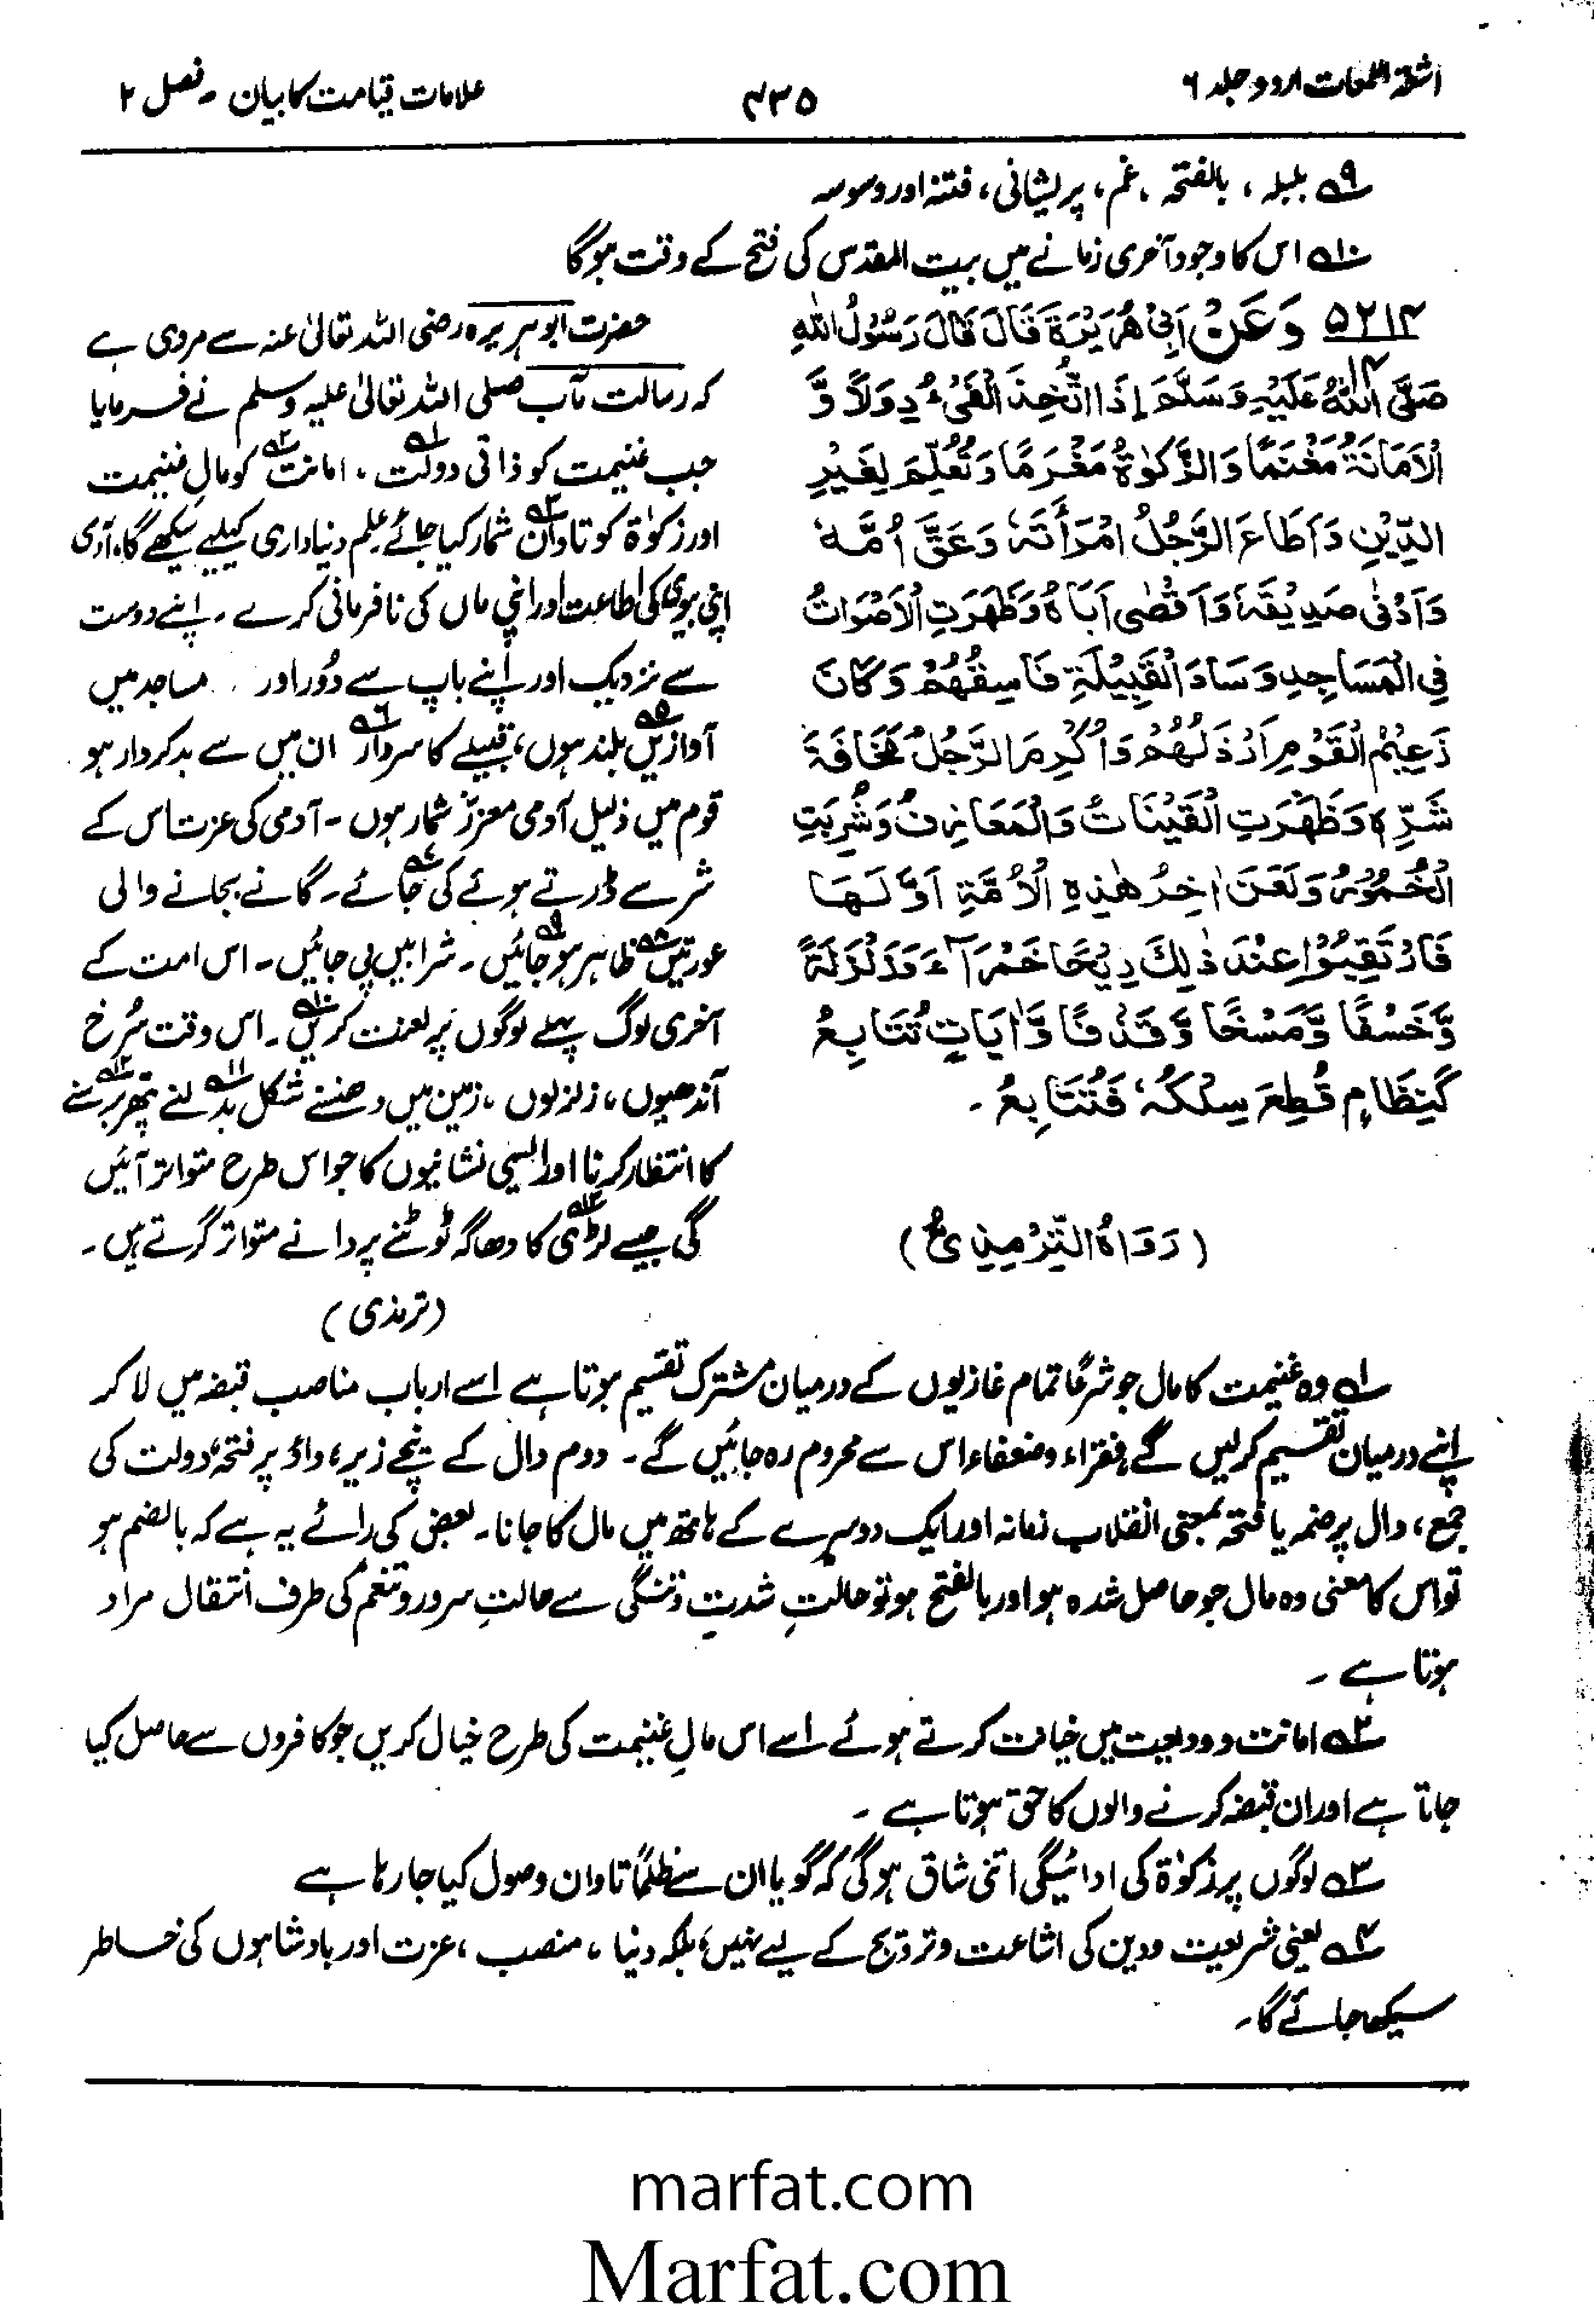 اشعۃ اللمعات اردو جلد ۶
۴۳۵
علامات قیامت کا بیان ۔ فصل ۲
۹؎ بلبلہ ، بالفتحہ ، غم ، پریشانی ، فتنہ اور وسوسہ
۱۰؎ اس کا وجود آخری زمانے میں بیت المقدس کی فتح کے وقت ہوگا
۵۲۱۴ وَعَنْ اَبِیْ هُرَیْرَةَ قَالَ قَالَ رَسُوْلُ اللّٰهِ
صَلَّی اللّٰهُ عَلَیْهِ وَسَلَّمَ اِذَا اتُّخِذَ الْفَیْءُ دِوَلًا وَّ
الْاَمَانَةُ مَغْنَمًا وَالزَّكٰوةُ مَغْرَمًا وَتُعُلِّمَ لِغَیْرِ
الدِّیْنِ وَاَطَاعَ الرَّجُلُ امْرَأَتَهٗ وَعَقَّ اُمَّهٗ
وَاَدْنٰی صَدِیْقَهٗ وَاَقْصٰی اَبَاهُ وَظَهَرَتِ الْاَصْوَاتُ
فِی الْمَسَاجِدِ وَسَادَ الْقَبِیْلَةِ فَاسِقُهُمْ وَكَانَ
زَعِیْمُ الْقَوْمِ اَرْذَلَهُمْ وَاُكْرِمَ الرَّجُلُ مَخَافَةَ
شَرِّهٖ وَظَهَرَتِ الْقَیْنَاتُ وَالْمَعَازِفُ وَشُرِبَتِ
الْخُمُوْرُ وَلَعَنَ اٰخِرُ هٰذِهِ الْاُمَّةِ اَوَّلَهَا
فَارْتَقِبُوْا عِنْدَ ذٰلِكَ رِیْحًا حَمْرَآءَ وَزَلْزَلَةً
وَّخَسْفًا وَّمَسْخًا وَّقَذْفًا وَّاٰیَاتٍ تُتَابِعُ
كَنِظَامٍ قُطِعَ سِلْكُهٗ فَتُتَابِعُ ۔
(رَوَاهُ التِّرْمِذِیُّ)
حضرت ابوہریرہ رضی اللہ تعالیٰ عنہ سے مروی ہے
کہ رسالت مآب صلی اللہ تعالیٰ علیہ وسلم نے فرمایا
جب غنیمت کو ذاتی دولت۱؎ ، امانت۲؎ کو مالِ غنیمت
اور زکوٰۃ کو تاوان۳؎ شمار کیا جائے علم دنیاداری کیلیے سیکھے گا، آدمی
اپنی بیوی کی اطاعت اور اپنی ماں کی نافرمانی کرے ۔ اپنے دوست
سے نزدیک اور اپنے باپ سے دُور اور مساجد میں
آوازیں۵؎ بلند ہوں، قبیلے کا سردار۶؎ ان میں سے بدکردار ہو
قوم میں ذلیل آدمی معزز شمار ہوں ۔ آدمی کی عزت اس کے
شر سے ڈرتے ہوئے کی جائے۷؎ ۔ گانے بجانے والی
عورتیں۸؎ ظاہر ہو جائیں۹؎ ۔ شرابیں پی جائیں ۔ اس امت کے
آخری لوگ پہلے لوگوں پر لعنت کریں۱۰؎ ۔ اس وقت سُرخ
آندھیوں ، زلزلوں ، زمین میں دھنسنے شکل بدلنے۱۱؎ پتھر برسنے۱۲؎
کا انتظار کرنا اور ایسی نشانیوں کا جو اس طرح متواتر آئیں
گی جیسے لڑی۱۳؎ کا دھاگہ ٹوٹنے پر دانے متواتر گرتے ہیں ۔
(ترمذی)
۱؎ وہ غنیمت کا مال جو شرعًا تمام غازیوں کے درمیان مشترک تقسیم ہوتا ہے اسے ارباب مناصب قبضہ میں لا کر
اپنے درمیان تقسیم کرلیں گے فقراء وضعفاء اس سے محروم رہ جائیں گے ۔ دوم دال کے نیچے زیر، واؤ پر فتحہ، دولت کی
جمع، دال پر ضمہ یا فتحہ بمعنی انقلاب زمانہ اور ایک دوسرے کے ہاتھ میں مال کا جانا ۔ بعض کی رائے یہ ہے کہ بالضم ہو
تو اس کا معنی وہ مال جو حاصل شدہ ہو اور بالفتح ہو تو حالتِ شدت وتنگی سے حالتِ سرور وتنعم کی طرف انتقال مراد
ہوتا ہے ۔
۲؎ امانت و ودیعت میں خیانت کرتے ہوئے اسے اس مالِ غنیمت کی طرح خیال کریں جو کافروں سے حاصل کیا
جاتا ہے اور ان قبضہ کرنے والوں کا حق ہوتا ہے ۔
۳؎ لوگوں پر زکوٰۃ کی ادائیگی اتنی شاق ہوگی کہ گویا ان سے ظلمًا تاوان وصول کیا جا رہا ہے
۴؎ یعنی شریعت ودین کی اشاعت وترویج کے لیے نہیں، بلکہ دنیا ، منصب ، عزت اور بادشاہوں کی خاطر
سیکھا جائے گا ۔
marfat.com
Marfat.com